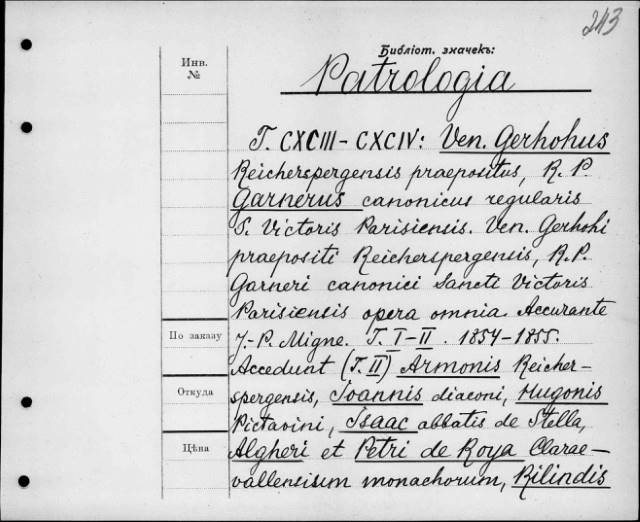 243
Библіот. значекъ:
Инв.
№
Patrologia
T. CXCIII-CXCIV: Ven. Gerhohus
Reicherspergensis praepositus, R. P.
Garnerus canonicus regularis
S. Victoris Parisiensis. Ven. Gerhohi
praepositi Reicherspergensis, R. P.
Garneri canonici Sancti Victoris
Parisiensis opera omnia. Accurante
По заказу
J.-P. Migne. T. I-II. 1854-1855.
Accedunt (T. II) Armonis Reicher-
Откуда
spergensis, Joannis diaconi, Hugonis
Pictavini, Isaac abbatis de Stella,
Цѣна
Algheri et Petri de Roya Clarae-
vallensium monachorum, Rilindis